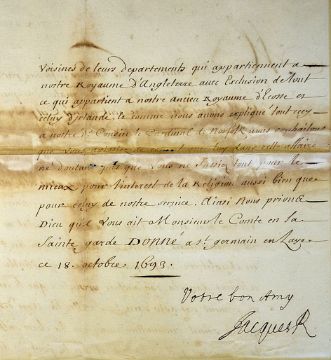 Voisines de leurs departements qui appartiennent a
nostre Royaume D'Angleterre avec Exclusion de tout
ce qui appartient a nostre ancien Royaume d'Ecosse et
celuy d'jrlande. et comme nous avons expliqué tout cecy
a nostre Cousin le Cardinal de nous souhaitons
que vous
ne doutant que vous ne fassiez tout pour le
mieux pour l'interest de la Religion aussi bien que
pour celuy de nostre service. Ainsi Nous prions
Dieu que vous ait Monsieur le Comte en la
Sainte garde DONNÉ a St germain en Laye
ce 18 octobre 1693.
Vostre bon Amy
Jacques R